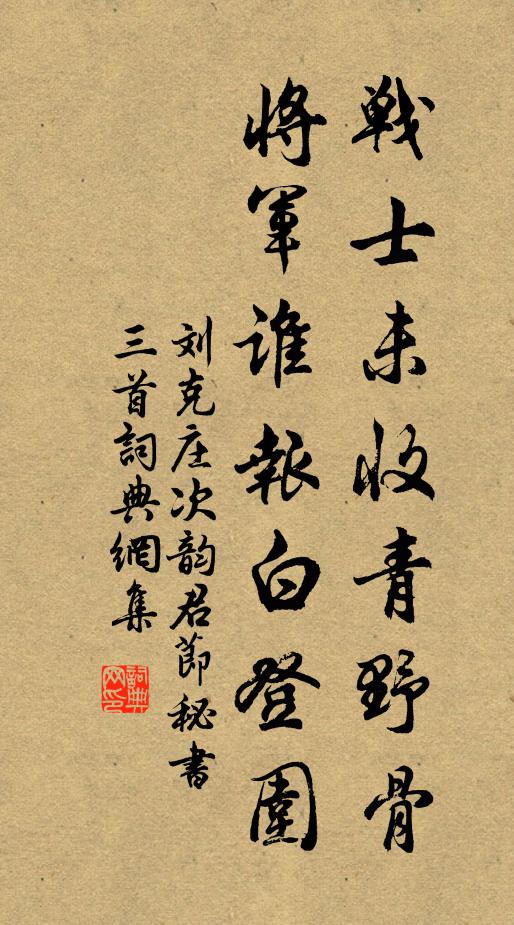 戦士未收青野骨
將軍誰報白登圍
刘克庄次韵君節秘書
三首詞典網集
詞典网印